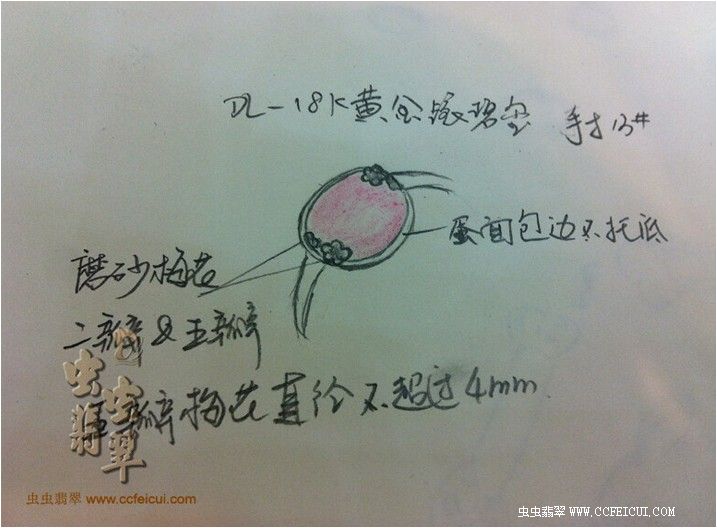 DL-18K黄金镶碧玺 手寸13#
蛋面包边不托底
磨砂梅花
二瓣&五瓣
五瓣梅花直径不超过4mm
虫虫翡翠
虫虫翡翠 www.ccfeicui.com
虫虫翡翠 WWW.CCFEICUI.COM